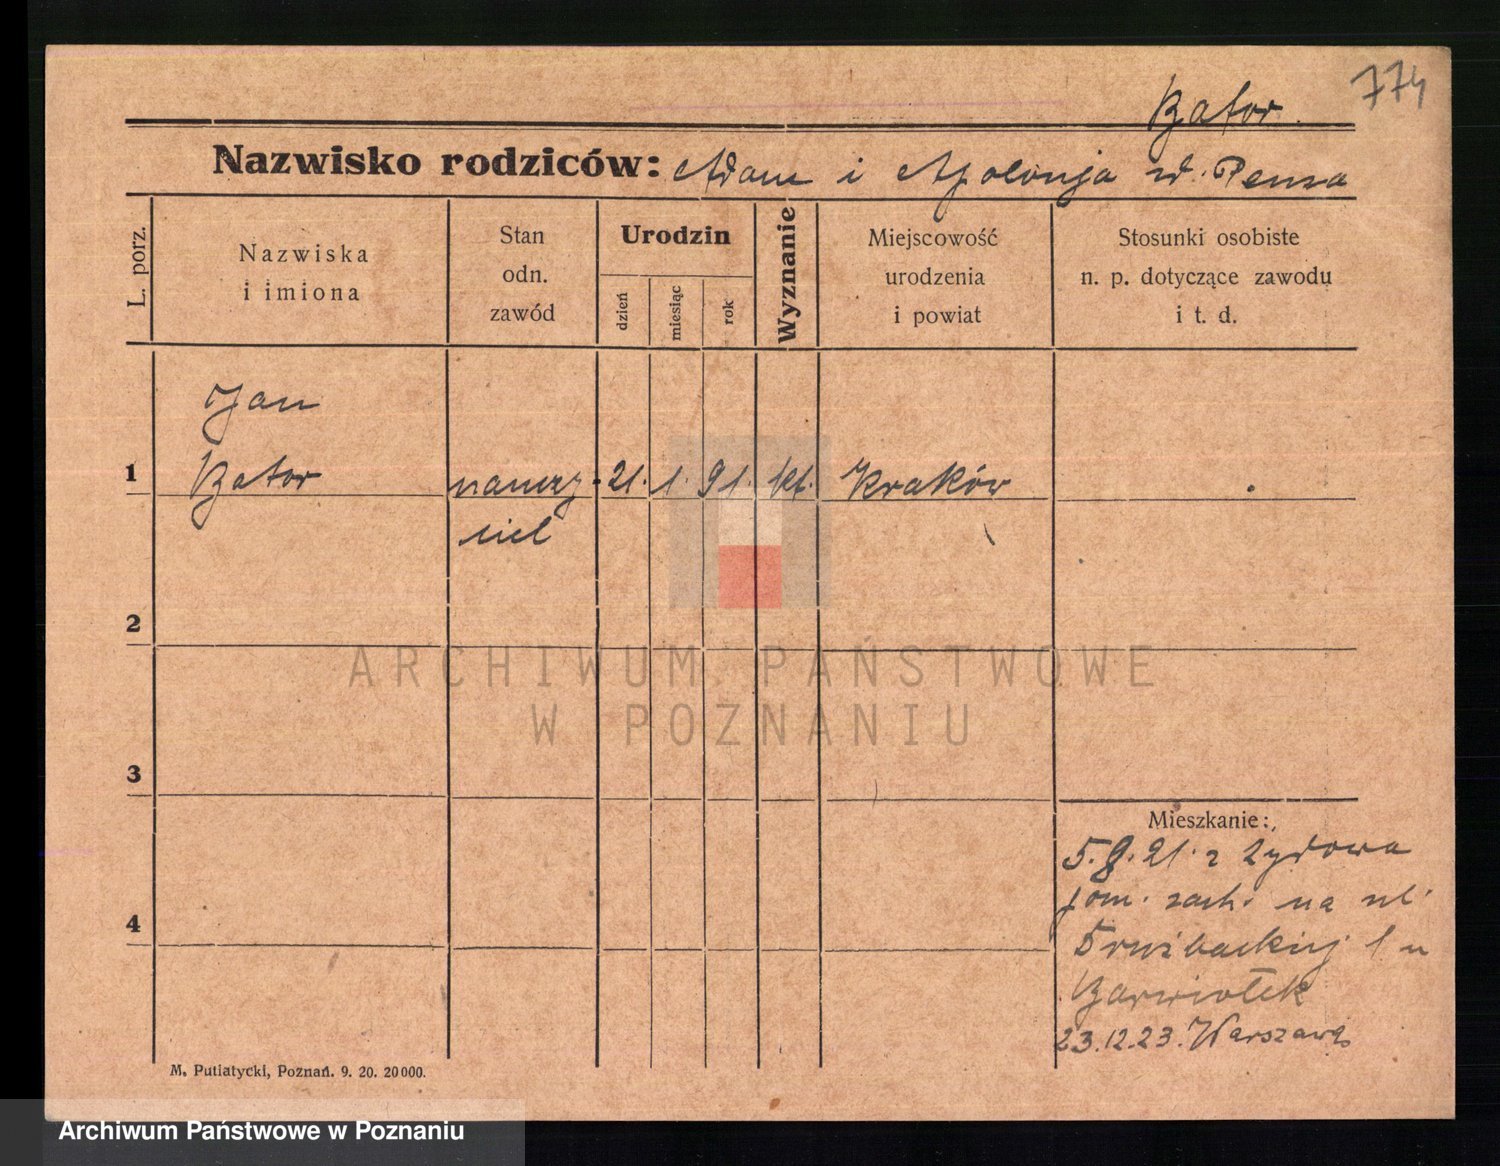 774
Bator
Nazwisko rodziców: Adam i Apolonja zd. Pensa
L. porz.
Nazwiska
i imiona
Stan
odn.
zawód
Urodzin
dzień
miesiąc
rok
Wyznanie
Miejscowość
urodzenia
i powiat
Stosunki osobiste
n. p. dotyczące zawodu
i t. d.
Jan
1 Bator nauczy- 21. 1. 91. kt. Kraków
ciel
2
3
4
Mieszkanie:
5. 8. 21. z Żydowa
pom. zach. na ul.
23.12.23. Warszawa
M. Putiatycki, Poznań. 9. 20. 20000.
ARCHIWUM PAŃSTWOWE
W POZNANIU
Archiwum Państwowe w Poznaniu